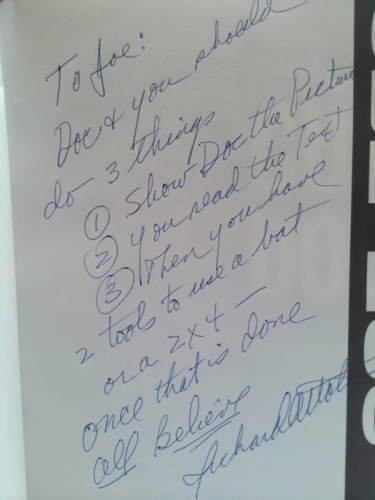 To Joe:
Doc & you should
do 3 things
① Show Doc the Picture
② You read the Text
③ Then you have
2 tools to use a bat
or a 2x4 —
once that is done
all Believe
Richard